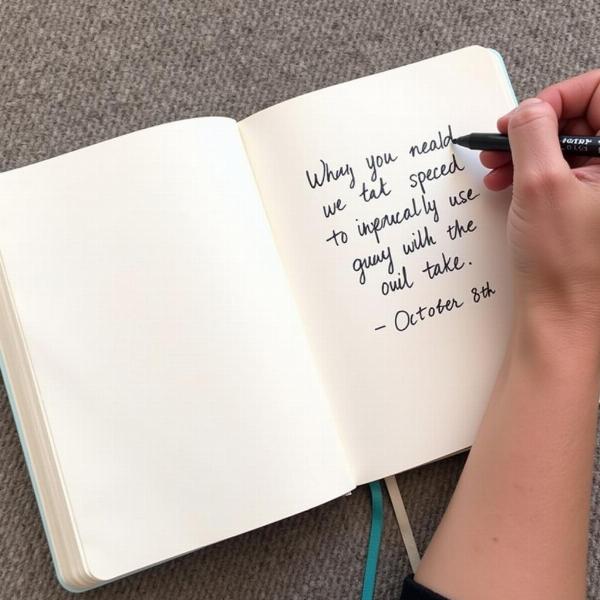 Whay you neald
we tat speced
to inprucally use
guay with the
ouil take.
– October 8th